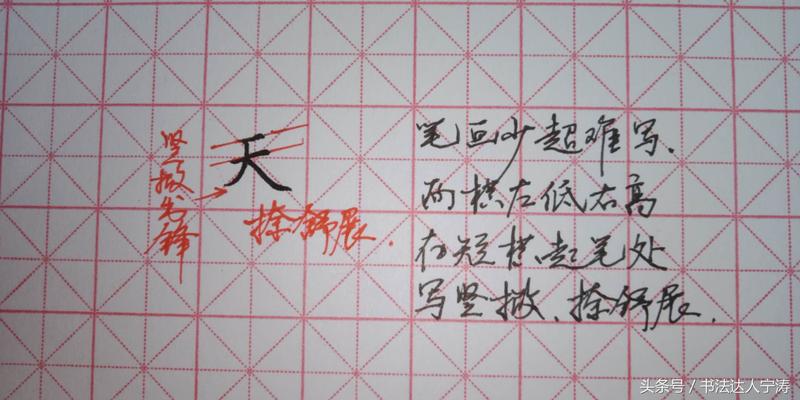 竖撇出锋
天
捺舒展.
笔画少超难写.
两横左低右高
在短横起笔处
写竖撇、捺舒展.
头条号／书法达人宁涛